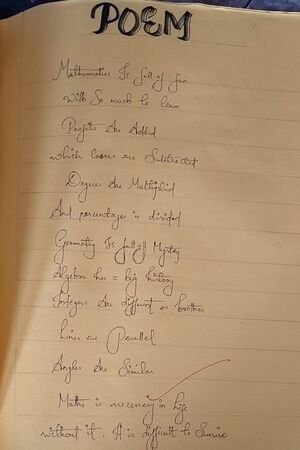 POEM
Mathematics Is full of fun
with So much to learn
Profits Are Added
which losses are Substracted
Degrees Are Multiplied
And percentages is divided
Geometry Is full of Mystery
Algebra has a big history
Integers Are different as brother
Lines are Parallel
Angles Are Similar
Maths is necessary in life
without it, It is difficult to Survive